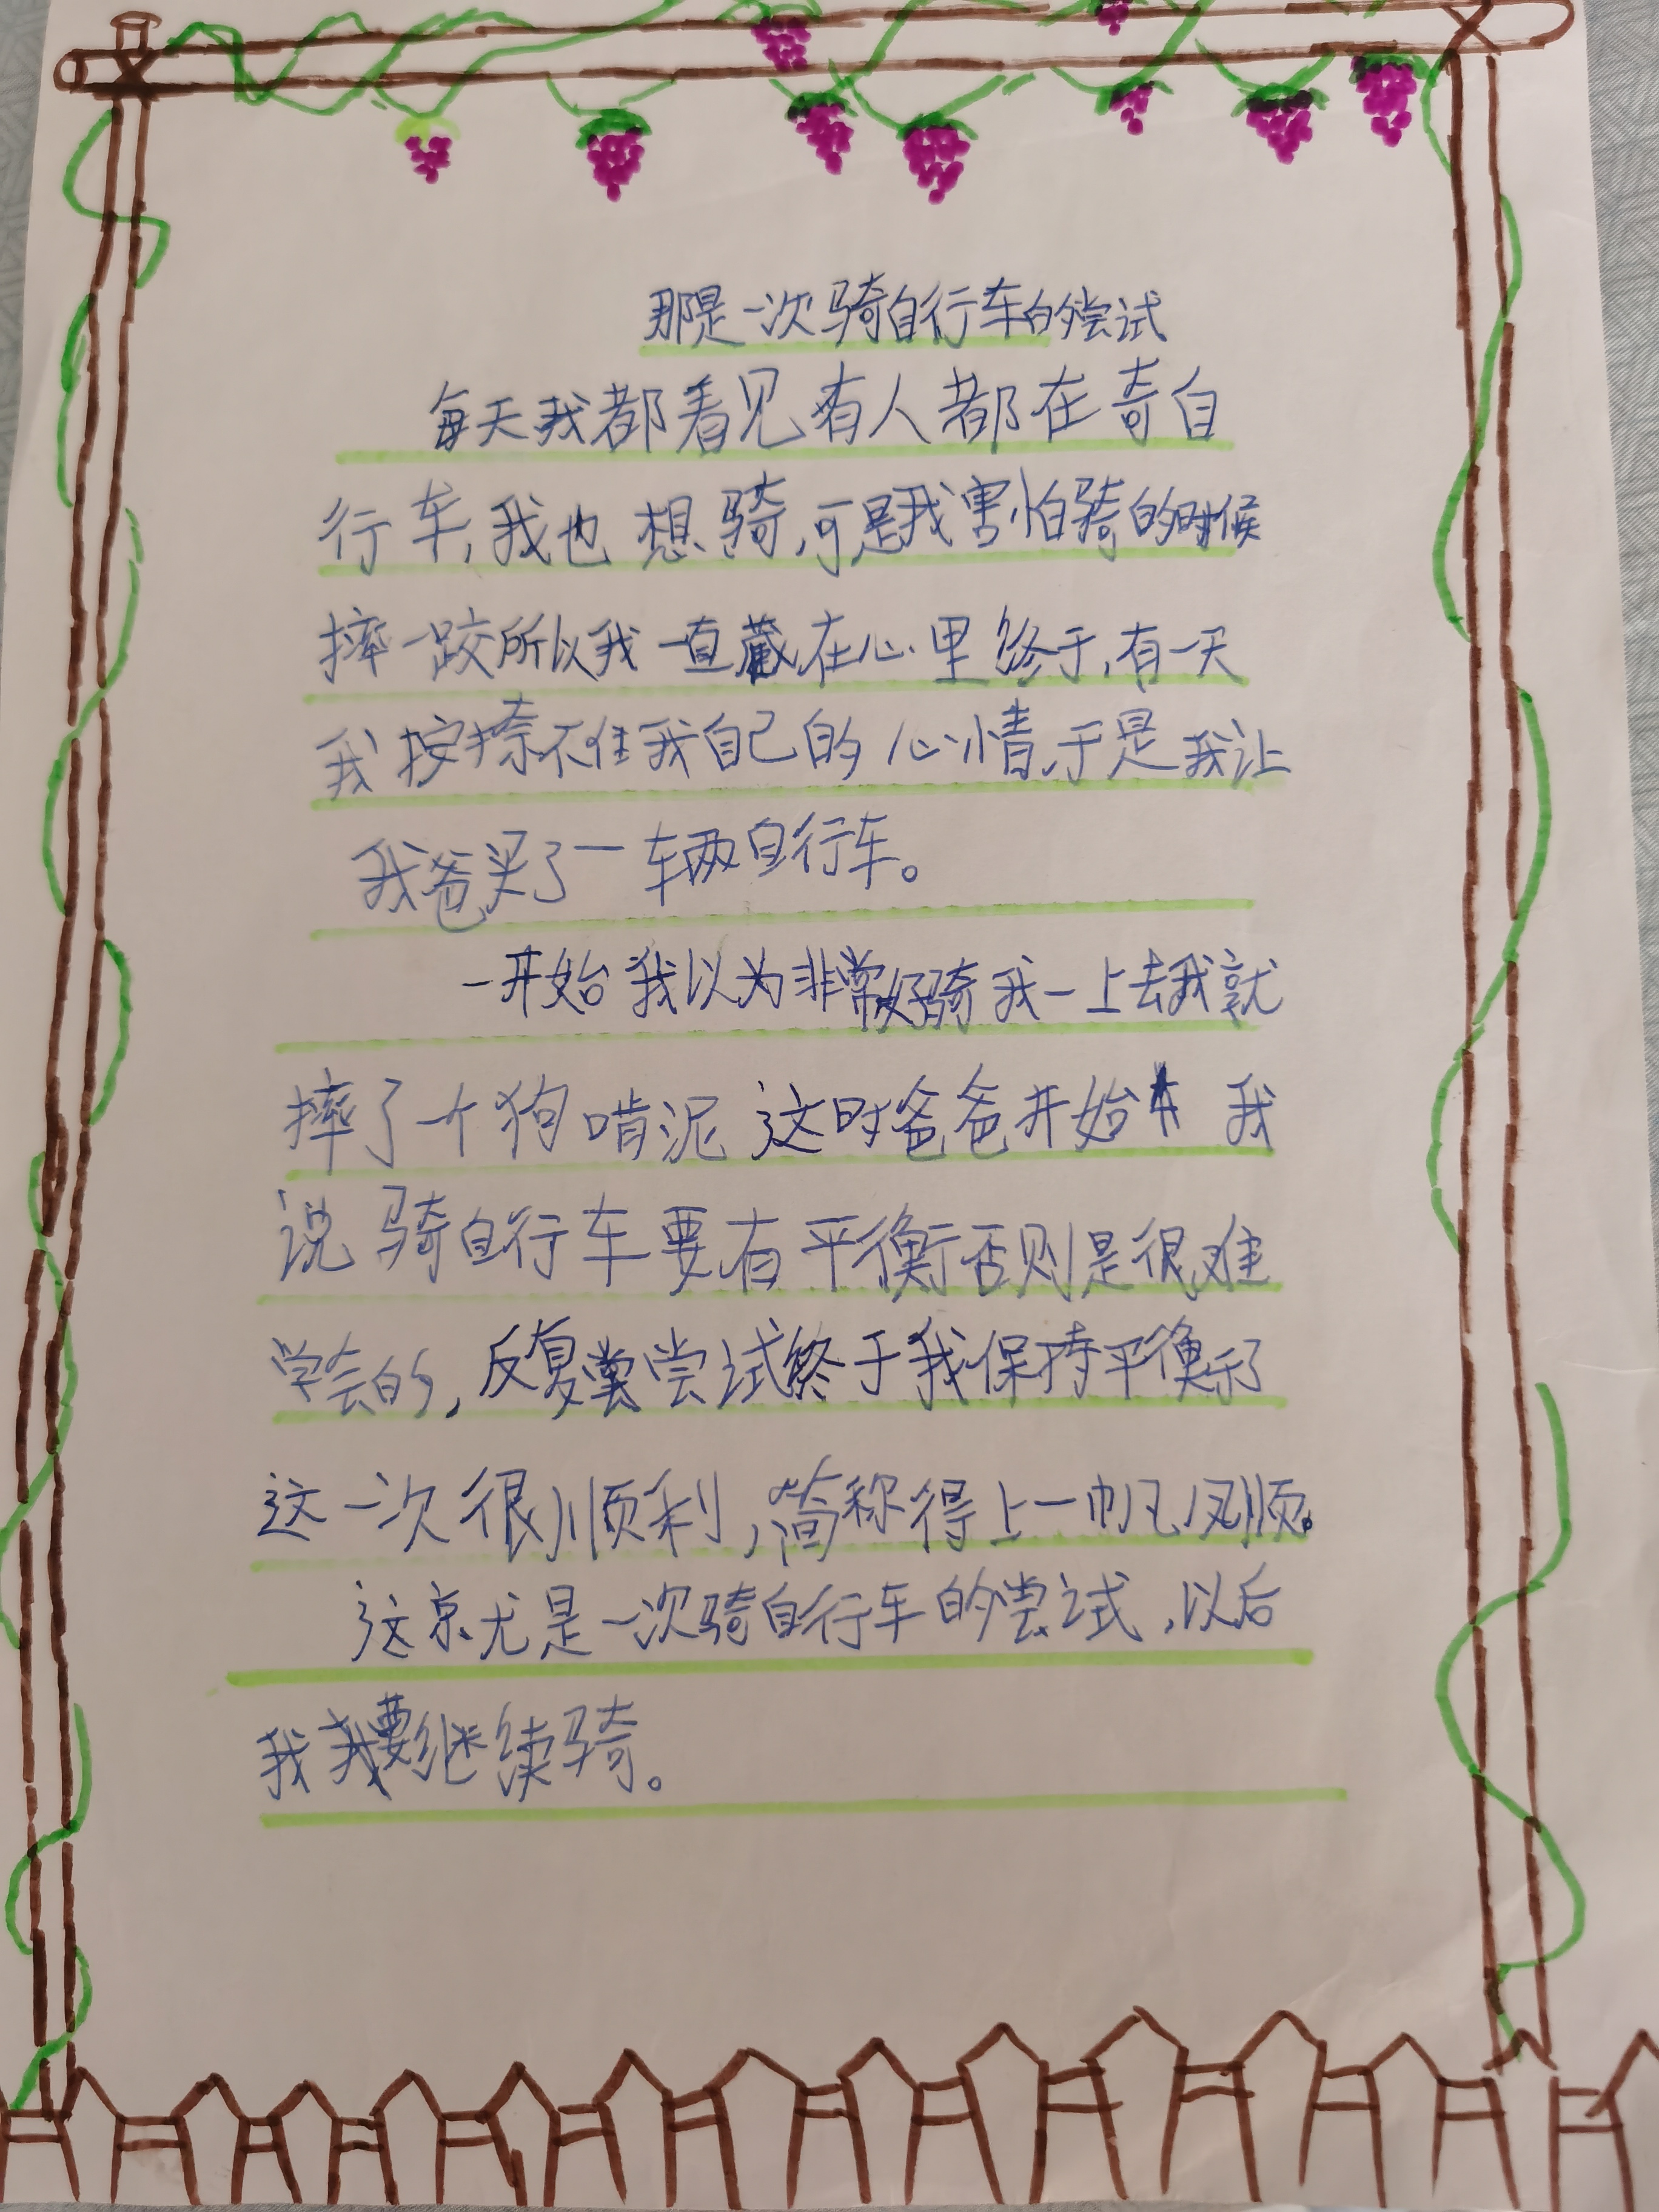 那是一次骑自行车的尝试
每天我都看见有人都在奇自
行车,我也想骑,可是我害怕骑的时候
摔一跤所以我一直藏在心里终于,有一天
我按捺不住我自己的心情,于是我让
我爸买了一辆自行车。
一开始我以为非常好骑我一上去我就
摔了一个狗啃泥这时爸爸开始 我
说骑自行车要有平衡否则是很难
学会的,反复尝试终于我保持平衡了
这一次很顺利,简称得上一帆风顺。
这就是一次骑自行车的尝试,以后
我我要继续骑。